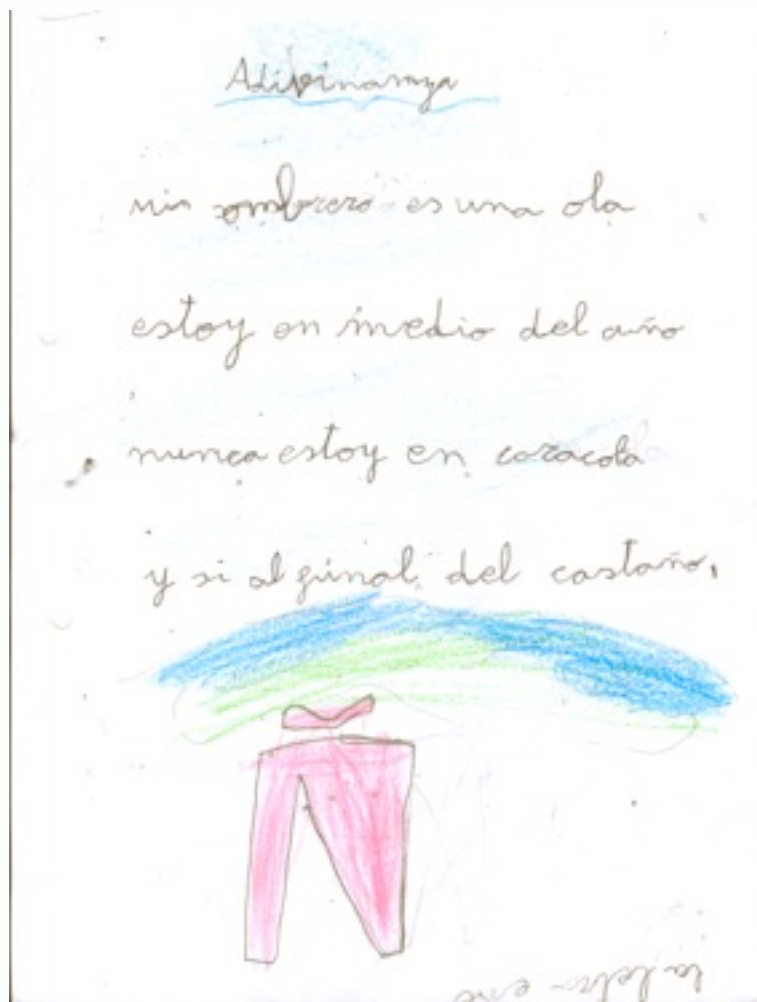 Adivinanza
mi sombrero es una ola
estoy en medio del año
nunca estoy en caracola
y si al final del castaño.
la letra eñe